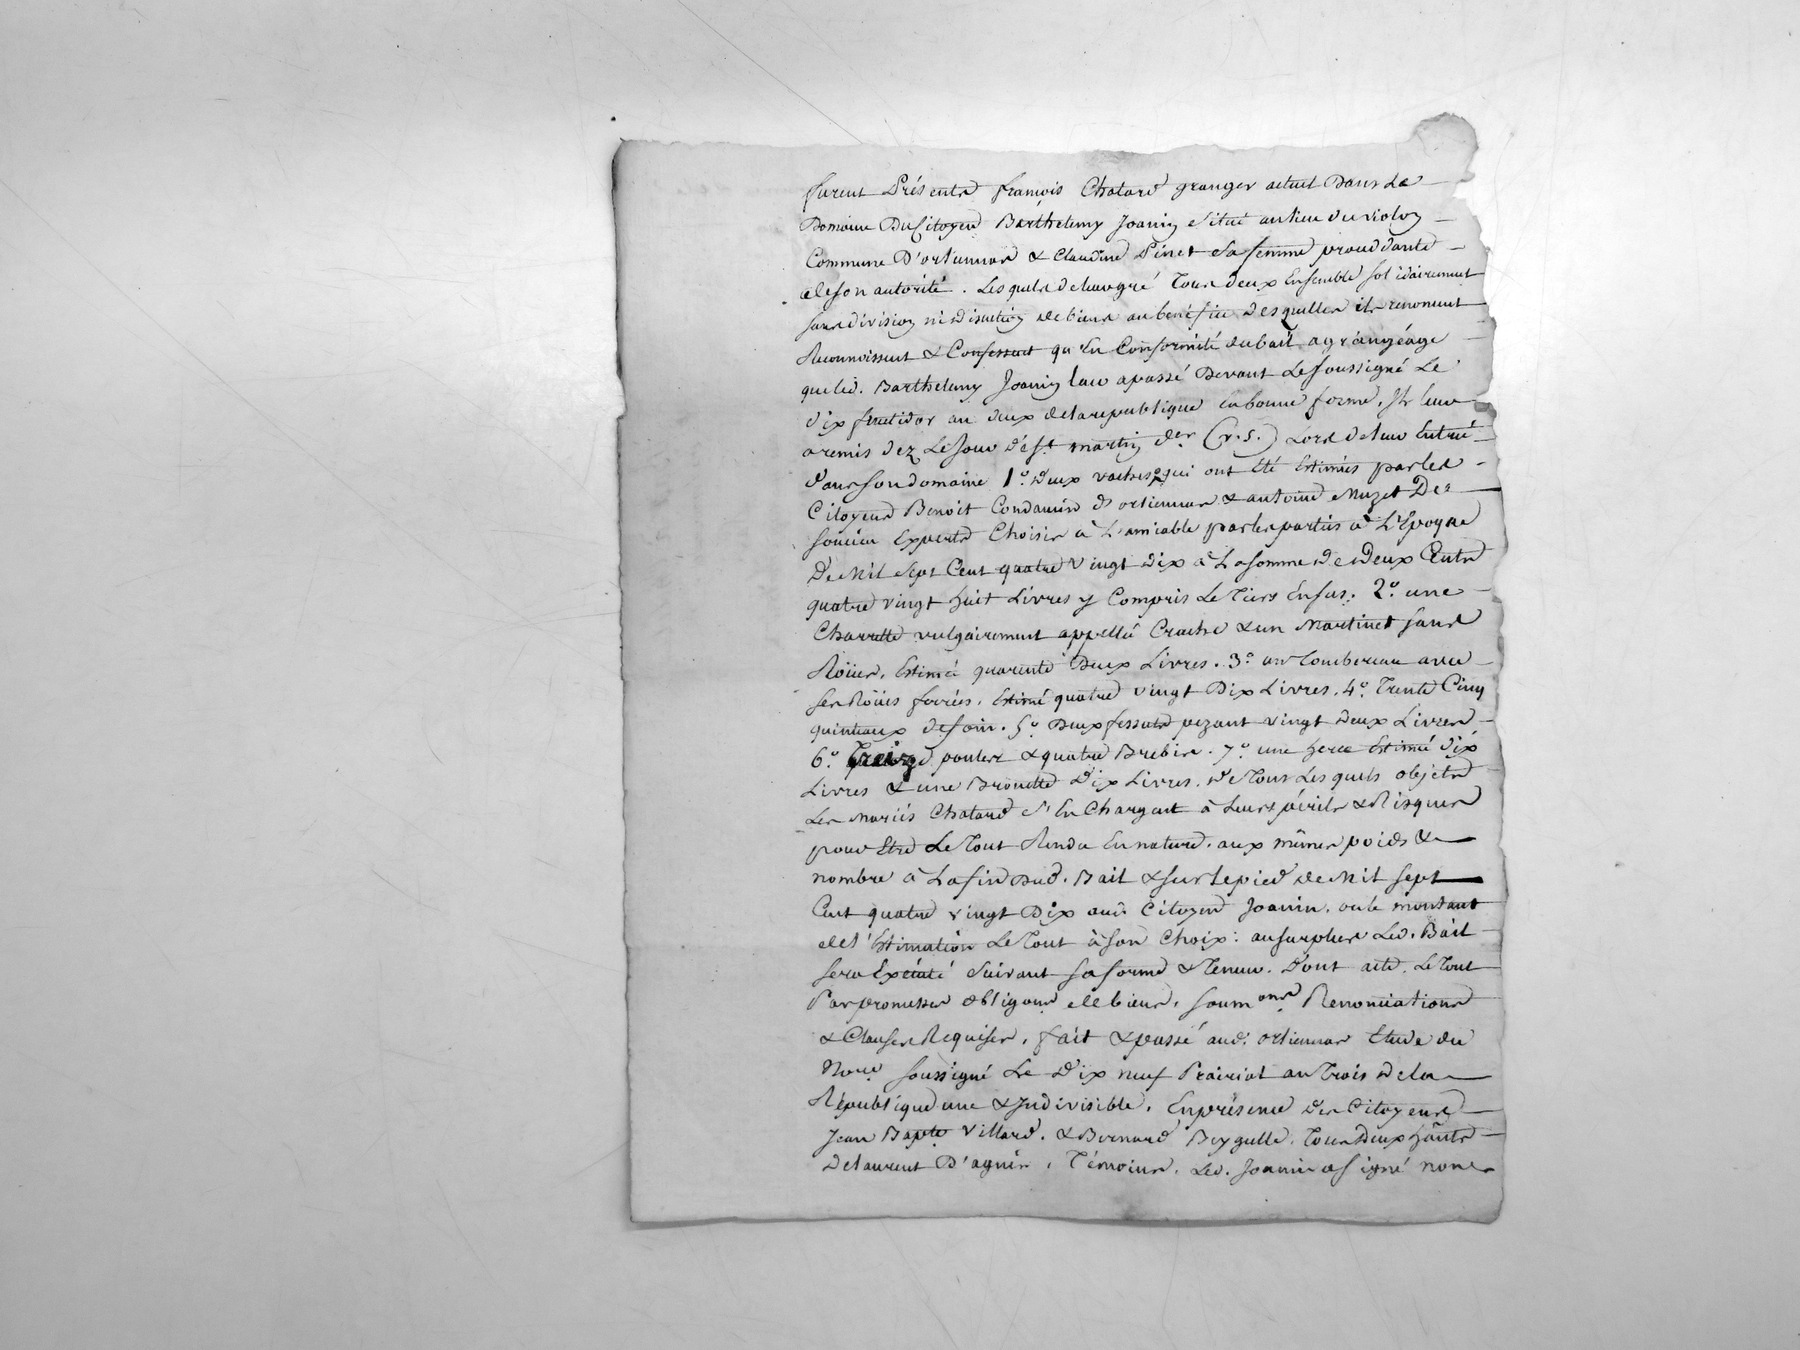 furent Présents françois Chatard granger actuel Dans Le
Domaine Du Citoyen Barthelemy Joanin situé au lieu du violay
Commune D'orliennas & Claudine Pinet sa femme procedante
de son autorité. Lesquels de leur gré Tous deux Ensemble solidairement
sans division ni discution de biens au bénéfice desquelles ils renoncent
Reconnoissent & Confessent qu'En Conformité du bail a grangéage
que led. Barthelemy Joanin leur a passé Devant Le soussigné Le
dix fructidor an deux de la republique En bonne forme, Il leur
a remis dez Le Jour de St. martin der. (v. s.) Lors de leur Entrée
dans son domaine 1o. deux vaches qui ont Eté Estimées par les
Citoyens Benoit Condamin d'orliennas & antoine Muzet De
soucieu Experts Choisis à L'amiable par les parties à L'Epoque
De Mil Sept Cent quatre vingt dix à La somme de Deux Cents
quatre vingt huit Livres y Compris Le Tiers En sus. 2o. une
Charrette vulgairement appellée Cruche & un Martinet sans
Roües, Estimé quarente Deux Livres. 3o. un Tombereau avec
ses Roües ferrées, Estimé quatre vingt Dix Livres. 4o. Trente Cinq
quintaux de foin. 5o. Deux fessous pezant vingt deux Livres
6o. Treize poules & quatre Brebis. 7o. une herce Estimé dix
Livres & une Broüette Dix Livres. De Tous Lesquels objets
Les Mariés Chatard s'En Chargent à Leurs périls & Risques
pour Etre Le Tout Rendu En nature, aux mêmes poids &
nombre à La fin Dud. Bail & sur le pied de Mil sept
Cent quatre vingt Dix aud. Citoyen Joanin, ou le montant
de l'Estimation Le Tout à son Choix: au surplus Led. Bail
sera Exécuté suivant sa forme & Teneur. Dont acte. Le Tout
Par promesses obligons. de biens, soum.ons Renonciations
& Clauses Requises, fait & passé aud. orliennas Etude du
Nore. soussigné Le Dix neuf Prairial an Trois de la
République une & Indivisible, En présence des Citoyens
Jean Bapte Villard, & Bernard Tous Deux hants
De laurent D'agnis, Témoins, Led. Joanin a signé non les